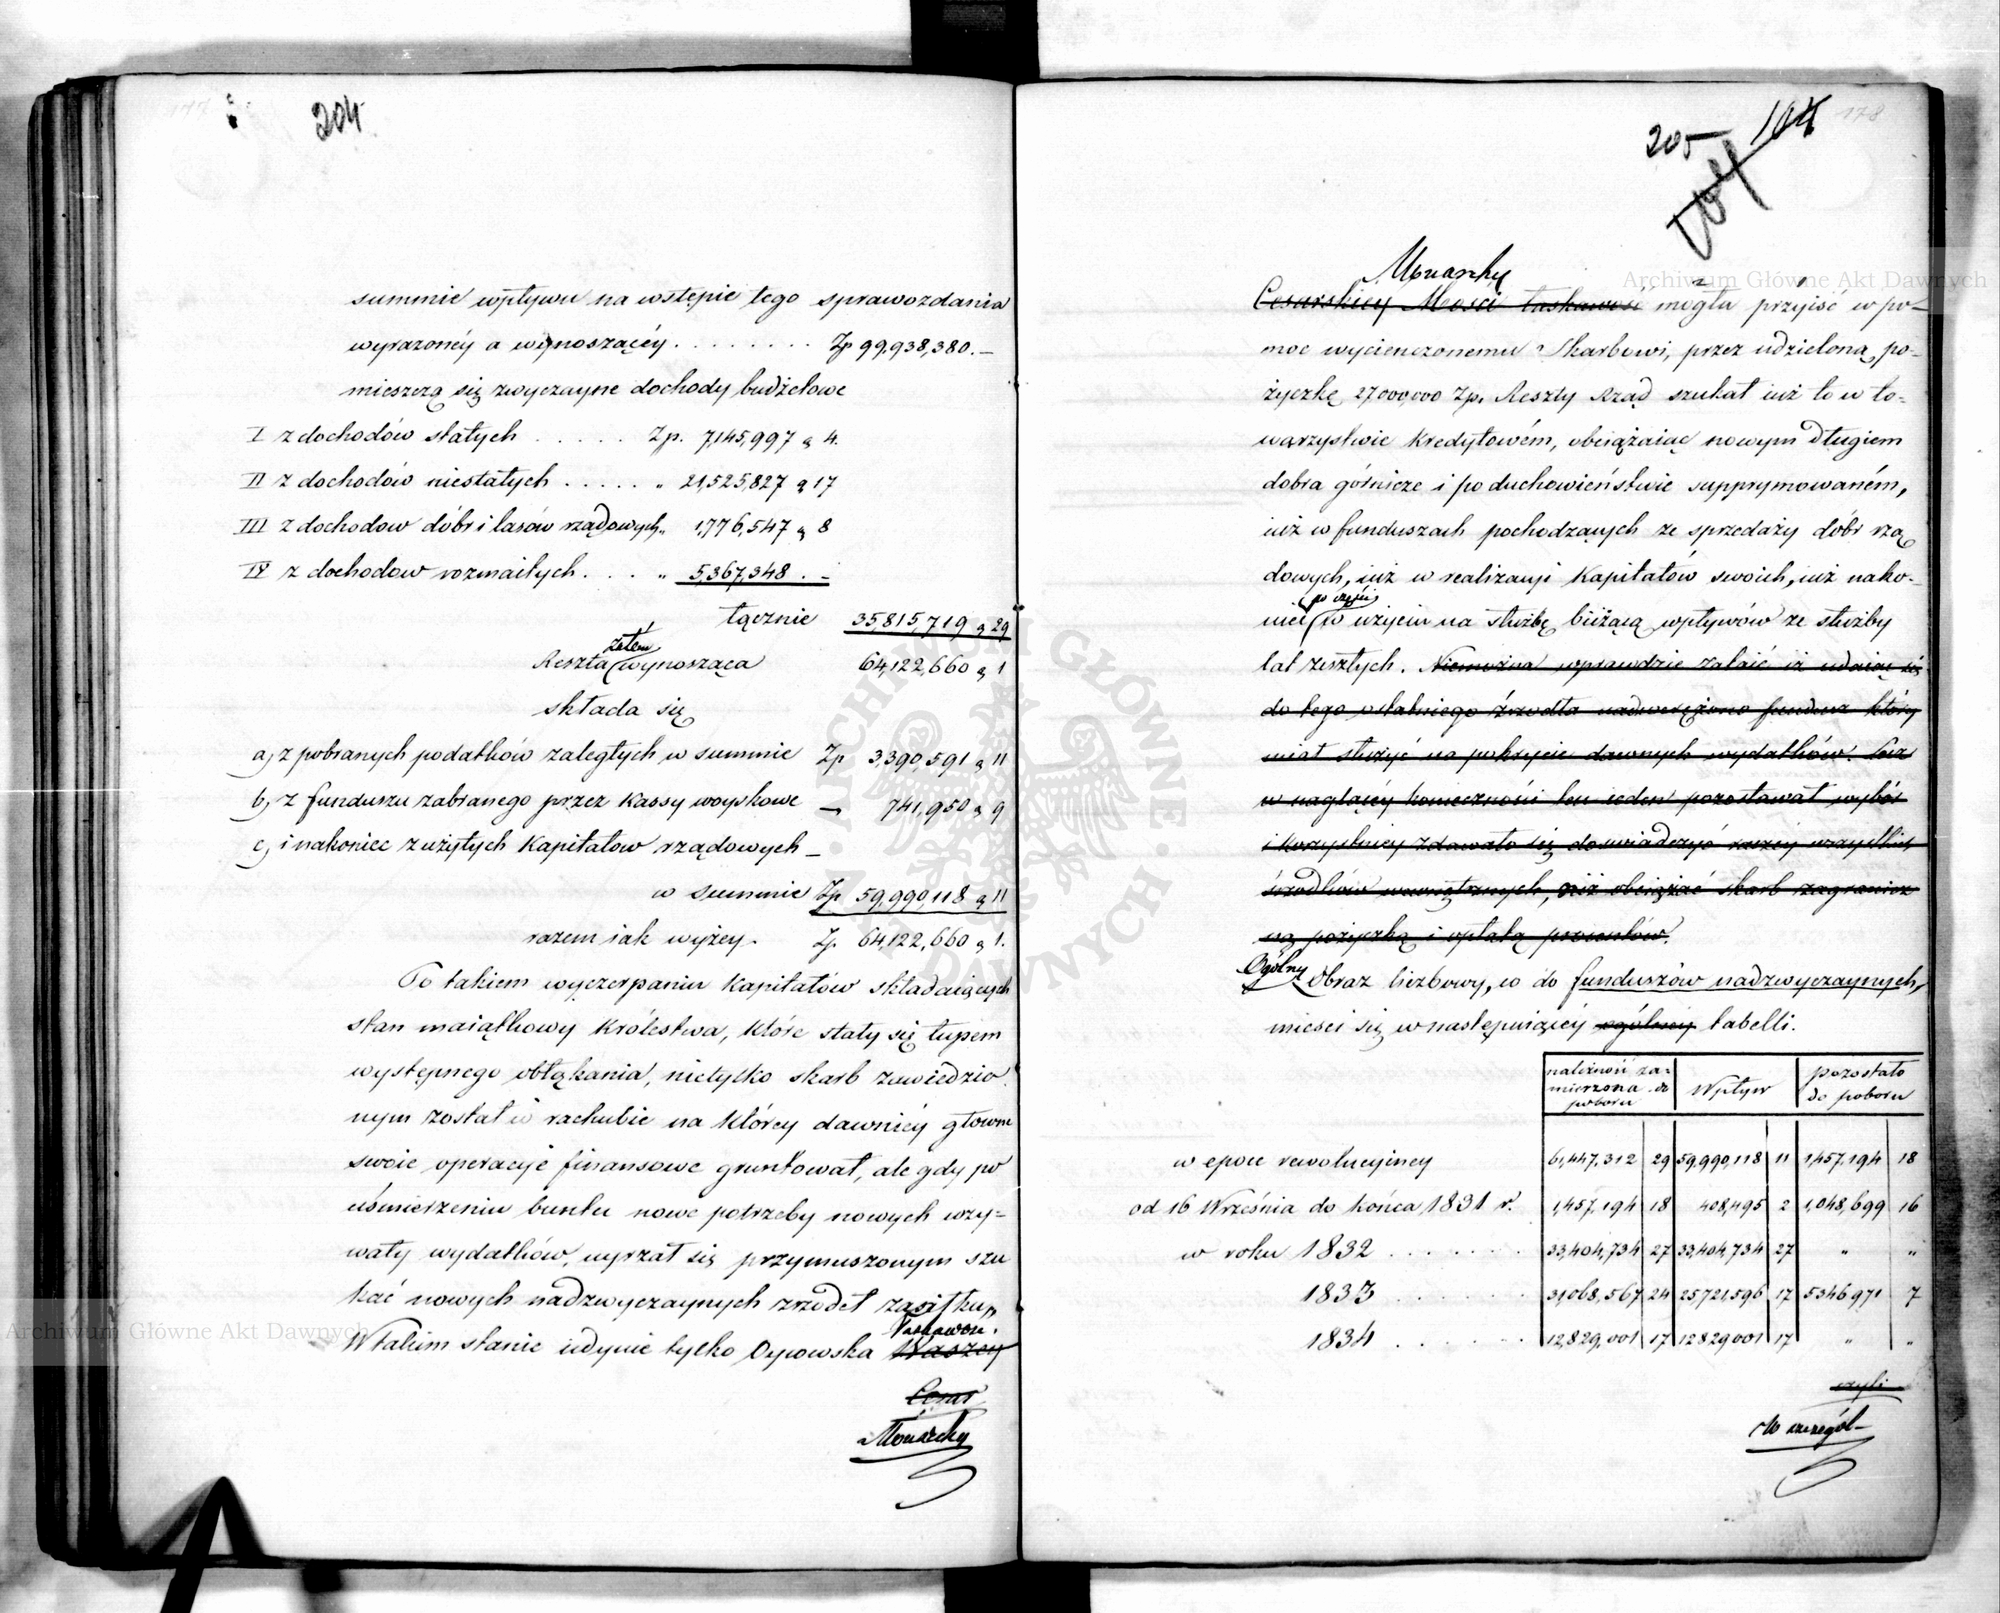 204
summie wpływu na wstępie tego sprawozdania
wyrazonéy a wynoszącéy . . . . . . . . Zp 99,938,380.—
mieszczą się zwyczayne dochody budżetowe
I z dochodów stałych . . . . . Zp. 7,145,997 g 4.
II z dochodów niestałych . . . . . „ 21,525,827 g 17
III z dochodow dóbr i lasów rządowych „ 1,776,547 g 8
IV z dochodow rozmaitych . . . . „ 5,367,348 . –
łącznie 35,815,719 g 29
zatém
Reszta wynosząca 64,122,660 g 1
składa się
a, z pobranych podatków zaległych w summie Zp 3,390,591 g 11
b, z funduszu zabranego przez Kassy woyskowe — 741,950 g 9
c, i nakoniec z użytych Kapitałow rządowych —
w summie Zp 59,990,118 g 11
razem iak wyżey. Zp. 64,122,660 g 1.
Po takiem wyczerpaniu Kapitałów składaiących
stan maiątkowy Królestwa, które stały się łupem
występnego obłąkania, nietylko skarb zawiedzio
nym został w rachubie na któréy dawniéy głowne
swoie operacyje finansowe gruntował, ale gdy po
uśmierzeniu buntu nowe potrzeby nowych wzy=
wały wydatków, uyrzał się przymuszonym szu
kać nowych nadzwyczaynych zrzodeł zasiłku,
W takim stanie iedynie tylko Oycowska Waszey
Łaskawość
Cesar
Monarchy
205 104
104
178
Monarchy
Cesarskiey Mości łaskawość mogła przyiść w po–
moc wycieńczonemu Skarbowi, przez udzieloną po–
życzkę 27,000,000 Zp. Reszty Rząd szukał iuż to w to–
warzystwie Kredytowém, obciążaiąc nowym długiem
dobra górnicze i po duchowieństwie supprymowaném,
iuż w funduszach pochodzących ze sprzedaży dóbr rzą
dowych, iuż w realizacyi Kapitałów swoich, iuż nako–
po części
niec w użyciu na służbę bieżącą wpływów ze służby
lat zeszłych. Niemożna wprawdzie zataić iż udaiąc się
do tego ostatniego źrzodła nadweręzono fundusz który
miał służyć na pokrycie dawnych wydatków. Lecz
w nagłącéy konieczności ten ieden pozostawał wybór
i korzystniéy zdawało się doświadczyć raczéy wszystkich
śrzodków wewnętrznych, niż obciążać skarb zagranicz
ną pożyczką i opłatą procentów.
Ogólny Obraz liczbowy, co do funduszów nadzwyczaynych,
mieści się w następuiącéy ogólnéy tabelli.
należność za= mierzona do poboru Wpływ pozostało do poboru
w epoce rewolucyinéy 61,447,312 29 59,990,118 11 1,457,194 18
od 16 Września do końca 1831 r. 1,457,194 18 408,495 2 1,048,699 16
w roku 1832 . . . . . . 33,404,734 27 33,404,734 27 „ „
1833 . . . . . . 31,068,567 24 25,721,596 17 5,346,971 7
1834 . . . . . . 12,829,001 17 12,829,001 17 „ „
czyli
W szczegól–
Archiwum Główne Akt Dawnych
Archiwum Główne Akt Dawnych
ARCHIWUM GŁÓWNE AKT DAWNYCH